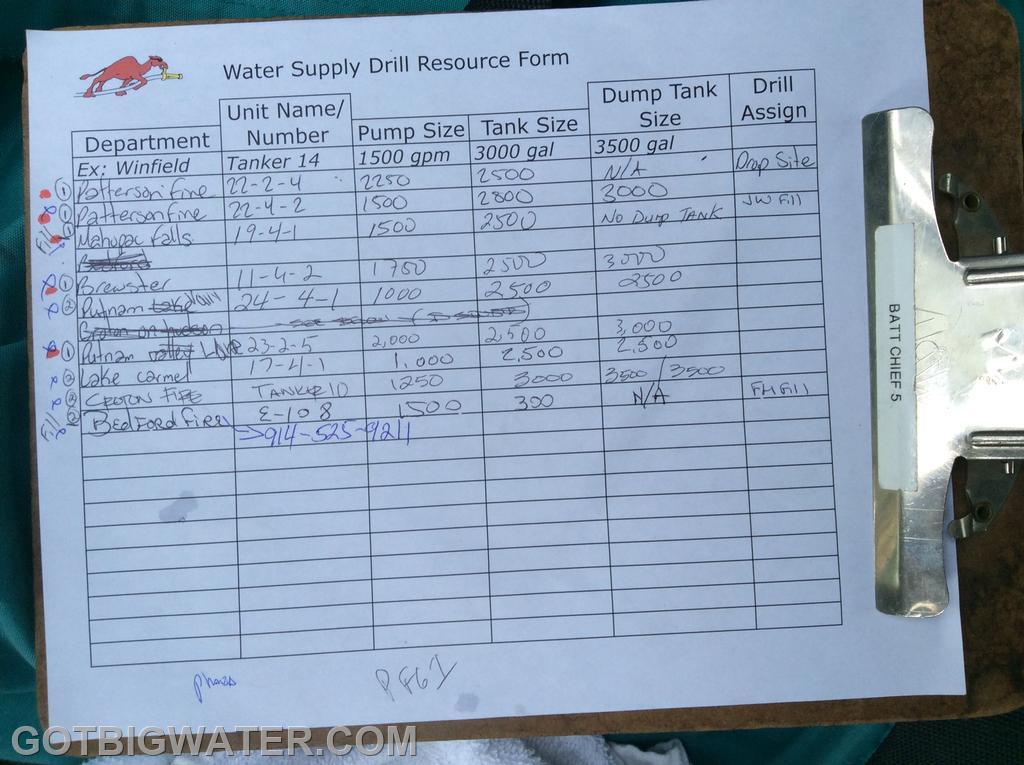 Water Supply Drill Resource Form
Department Unit Name/ Number Pump Size Tank Size Dump Tank Size Drill Assign
Ex: Winfield Tanker 14 1500 gpm 3000 gal 3500 gal
① Patterson Fire 22-2-4 2250 2500 N/A Drop Site
① Patterson Fire 22-4-2 1500 2800 3000
Fill ① Mahopac Falls 19-4-1 1500 2500 No Dump TANK JW Fill
① Brewster 11-4-2 1750 2500 3000
② Putnam Lake 24-4-1 1000 2500 2500
Croton on Hudson
① Putnam Valley 23-2-5 2,000 2,500 3,000
② Lake Carmel 17-4-1 1,000 2,500 2,500
② CROTON FIRE TANKER 10 1250 3000 3500 / 3500
Fill ② BEDFORD FIRE E-108 1500 300 N/A FH Fill
914-525-9211
phones
BATT CHIEF 5
GOTBIGWATER.COM